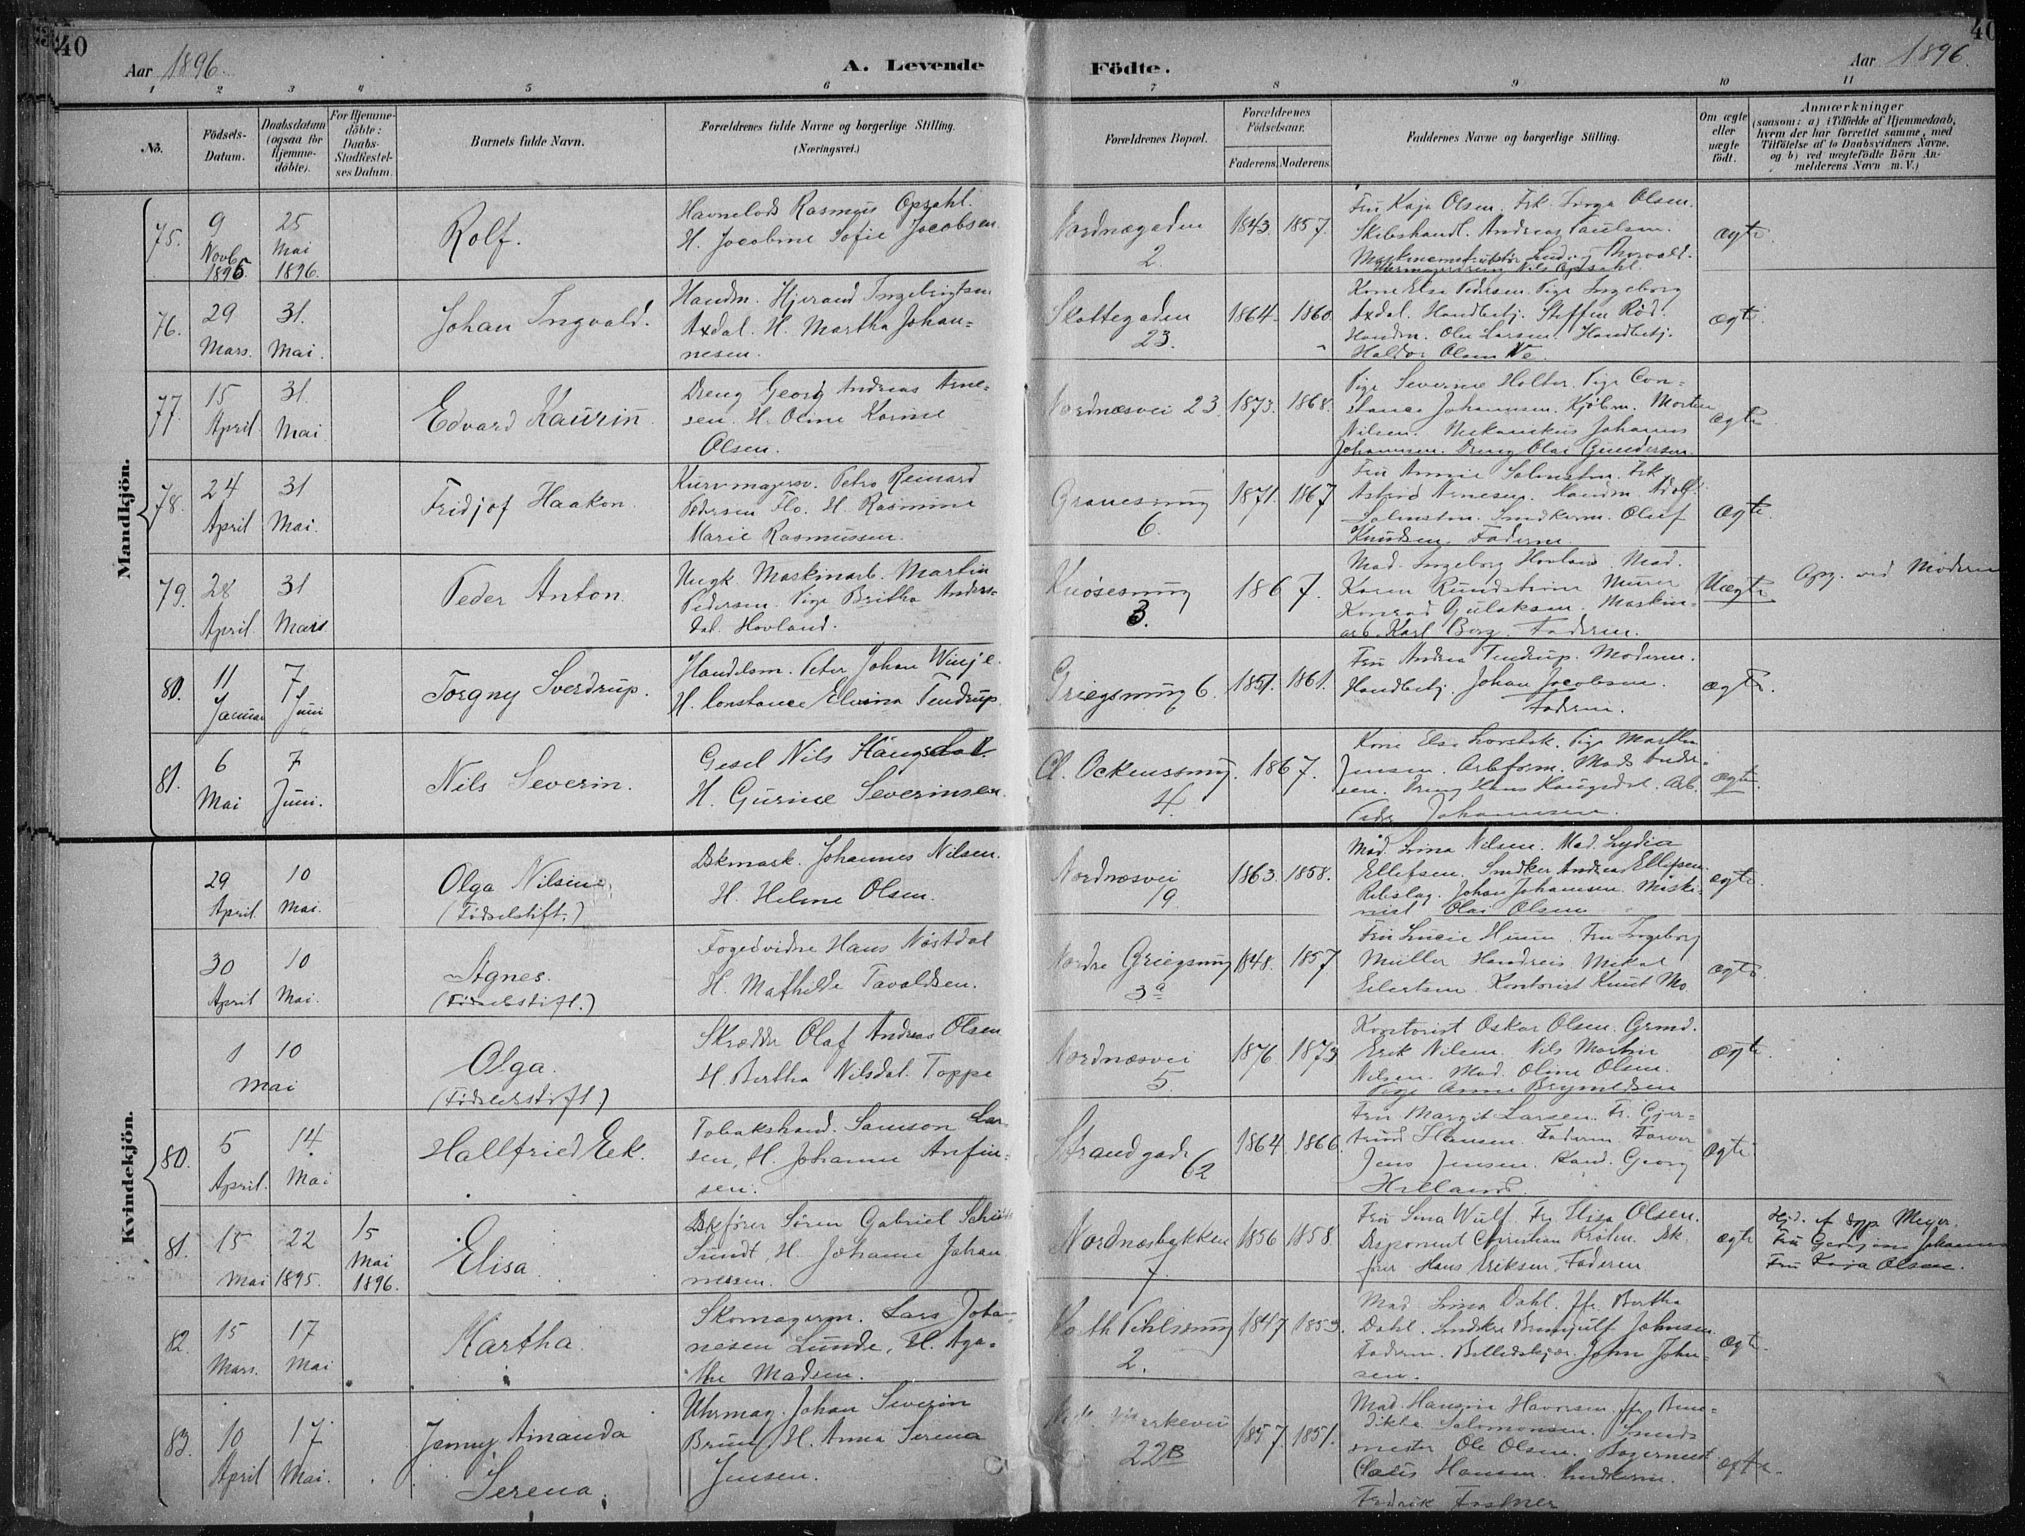 40
Aar 1896.
A. Levende
Födte.
Aar 1896.
40
1 2 3 4 5 6 7 8 9 10 11
No.
Födsels-
Datum.
Daabsdatum
(ogsaa for
Hjemme-
döbte).
For Hjemme-
döbte:
Daabs-
Stadfæstel-
ses Datum.
Barnets fulde Navn.
Forældrenes fulde Navne og borgerlige Stilling.
(Næringsvei.)
Forældrenes Bopæl.
Forældrenes
Födselsaar.
Faderens. Moderens.
Faddernes Navne og borgerlige Stilling.
Om ægte
eller
uægte
födt.
Anmærkninger
(saasom: a) i Tilfælde af Hjemmedaab,
hvem der har forrettet samme, med
Tilföielse af to Daabsvidners Navne,
og b) ved uægtefödte Börn An-
melderens Navn m. V.)
Mandkjön.
75.
9
Novb
1895
25
Mai
1896.
Rolf.
Havnelods Rasmus Opsahl.
H. Jocobine Sofie Jocobsen
Nordnægaden
2.
1843. 1857.
Fru Kaja Olsen. Frk. Inga Olsen.
Skibshandl. Andreas Paulsen.
Nils Opsahl.
ægte.
76.
29
Mars.
31.
Mai.
Johan Ingvald.
Handm. Hjerand Ingebrigtsen
Axdal. H. Martha Johan-
nesen.
Slottegaden
23.
1864. 1860.
Kone Elsa Pedersen. Pige Ingeborg
Axdal. Handbetj. Steffen Röd.
Handm. Ole Larsen. Handbetj.
Haldor Olsen
ægte.
77.
15
April.
31.
Mai
Edvard Kaurin
Dreng Georg Andreas Arne-
sen. H. Oline Karine
Olsen.
Nordnæsvei 23.
1873. 1868.
Pige Severine Holter. Pige Con-
stance Johannsen. Kjöbm. Morten
Nilsen. Johannes
Johannsen. Dreng Olai Gundersen
ægte
78.
24
April
31
Mai.
Fridjof Haakon.
Kurvmagersv. Petro Reinard
Pedersen Flo. H. Rasmine
Marie Rasmussen.
Gravesmug
6.
1871. 1867
Fru Annie Salmsten. Frk.
Astrid Arnesen. Handm. Adolf
Salmsten. Smedkerm. Oluf
Knudsen. Faderen.
ægte.
79.
28
April.
31
Mars
Peder Anton.
Ungk. Maskinarb. Martin
Pedersen. Pige Britha Anders-
dat. Hovland.
Knösesmug
3.
1867.
Mad. Ingeborg Hovland. Mad.
Karen Rundström Murer
Konrad Gulaksen. Maskin-
arb. Karl Berg. Faderen.
Uægte
Opg. ved Moderen
80.
11
Januar
7
Juni
Torgny Sverdrup.
Handelsm. Peter Johan Winje.
H. Constance Elvina Tendrup.
Griegsmug 6.
1851. 1861.
Fru Andrea Tendrup. Moderen.
Handbetj. Johan Jacobsen.
Faderen.
ægte.
81.
6
Mai
7
Juni.
Nils Severin.
Gesel Nils Haugsdal.
H. Gurine Severinsen.
Cl. Ockenssmug.
4.
1867.
Kone Elsa Lorstok. Pige Martha
Jensen. Arbform. Mads Ander-
sen. Dreng Hans Haugsdal. Arb.
Peder Johannsen.
ægte.
Kvindekjön.
29
April.
10
Mai.
Olga Nilsine
(Födselstift.)
Dskmask. Johannes Nilsen.
H. Helene Olsen.
Nordnæsvei
19.
1863. 1858.
Mad. Lina Nilsen. Mad. Lydia
Ellefsen. Smedker Andreas Ellefsen
Rebslag. Johan Johansen. Maski-
nist Olai Olsen.
ægte.
30
April
10
Mai.
Agnes.
(Födselsstift.)
Fogedvidne Hans Nöstdal
H. Mathilde Tavaldsen.
Nordre Griegsmug
3a
1848. 1857
Fru Lucie Huun. Fru Ingeborg
Müller. Handreis. Mikal
Eilertsen. Kontorist Knut Mo.
ægte
1 10
mai
Olga.
(Födselsstift.)
Skrædder Olaf Andreas Olsen
H. Bertha Nilsdat. Toppe
Nordnæsvei
5.
1876. 1873
Kontorist Oskar Olsen. Grmd.
Erik Nilsen. Nils Martin
Nilsen. Mad. Oline Olsen.
Pige Anna Brynildsen
ægte.
80.
5
April.
14.
Mai
Hallfried Eek.
Tobakshand. Samson Lar-
sen, H. Johanne Anfin-
sen.
Strandgade
62
1864 1866.
Fru Margit Larsen. Fr. Gjer-
trud Hansen. Faderen. Farver
Jens Jensen. Kand. Georg
Hilland.
ægte.
81.
15
Mai
22
1895.
15
Mai
1896.
Elisa
Dskförer Sören Gabriel Schiött
Sundt, H. Johanne Johan
nessen.
Nordnæsbakken
7.
1856 1858.
Fru Sina Wulf. Fr. Elisa Olsen.
Disponent Christian Krohn. Dsk.
förer Hans Eriksen, Faderen
ægte
Hjd. af Meyer.
Fru Georgine Johannes
Fru Kaja Olsen.
82.
15
Mars.
17
Mai
Martha.
Skomagerm. Lars Joha-
nesen Lunde, H. Aga-
the Madsen.
Koth Pihlssmug
2.
1847. 1853.
Mad. Lina Dahl. Jfr. Bertha
Dahl. Smedker Brynjulf Johnsen
Faderen. Billedskjær. John John-
sen.
ægte.
83.
10
April
17
Mai.
Jenny Amanda
Serena.
Uhrmag. Johan Severin
Bruun, H. Anna Serena
Jensen.
22B
1857. 1851.
Mad. Hansine Halvorsen. Jfr. Bene-
dikte Salomonsen. Smeds-
mester Ole Olsen. Bagermest
Claus Hansen. Smedkerm.
Fredrik Fastner
ægte.